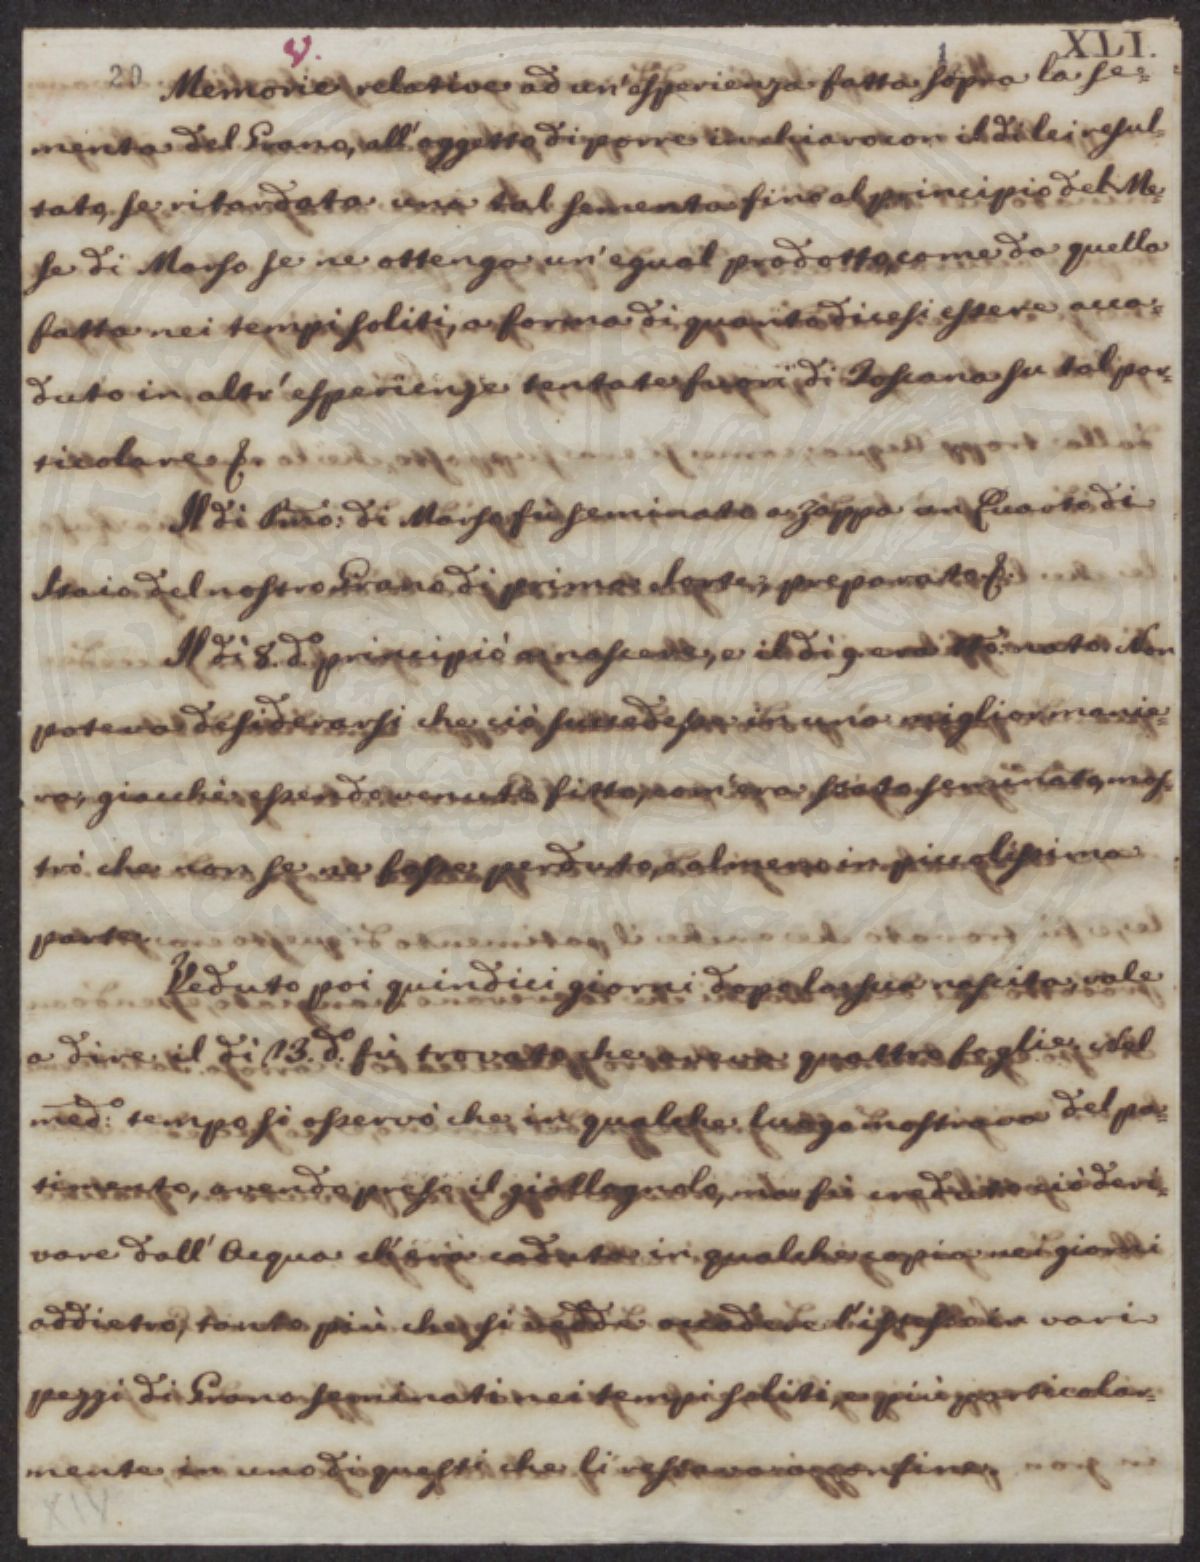 V.
1
XLI.
20
Memorie relative ad un'esperienza fatta sopra la se=
menta del Grano, all'oggetto di porre in chiaro con il di lei resul=
tato, se ritardata una tal sementa fino al principio del Me=
se di Marso se ne ottenga un'egual prodotto, come da quella
fatta nei tempi soliti, a forma di quanto dicesi essere acca=
duto in altr'esperienze tentate fuori di Toscana su tal par=
ticolare
Il dì Pmō: di Marso fù seminato a zappa un Quarto di
Staio del nostro Grano di prima sorte, preparato
Il dì 8. do principiò a nascere, e il dì 9. era tto nato. Non
poteva desiderarsi che ciò succedesse in una miglior manie=
ra, giacchè essendo venuto fitto, com'era stato seminato, mos=
trò che non se ne fosse perduto, o almeno in piccolissima
parte.
Veduto poi quindici giorni dopo la sua nascita, vale
a dire il dì 23. do fù trovato che aveva quattro foglie. Nel
medo: tempo si osservò che in qualche luogo mostrava del pa=
timento, avendo preso il giallognolo, ma fù creduto ciò deri=
vare dall'Acqua ch'era caduta in qualche copia nei giorni
addietro, tanto più che si vedde accadere l'istesso in vari
pezzi di Grano seminati nei tempi soliti, e più particolar=
mente in uno di questi che li restava a confine.
XIV